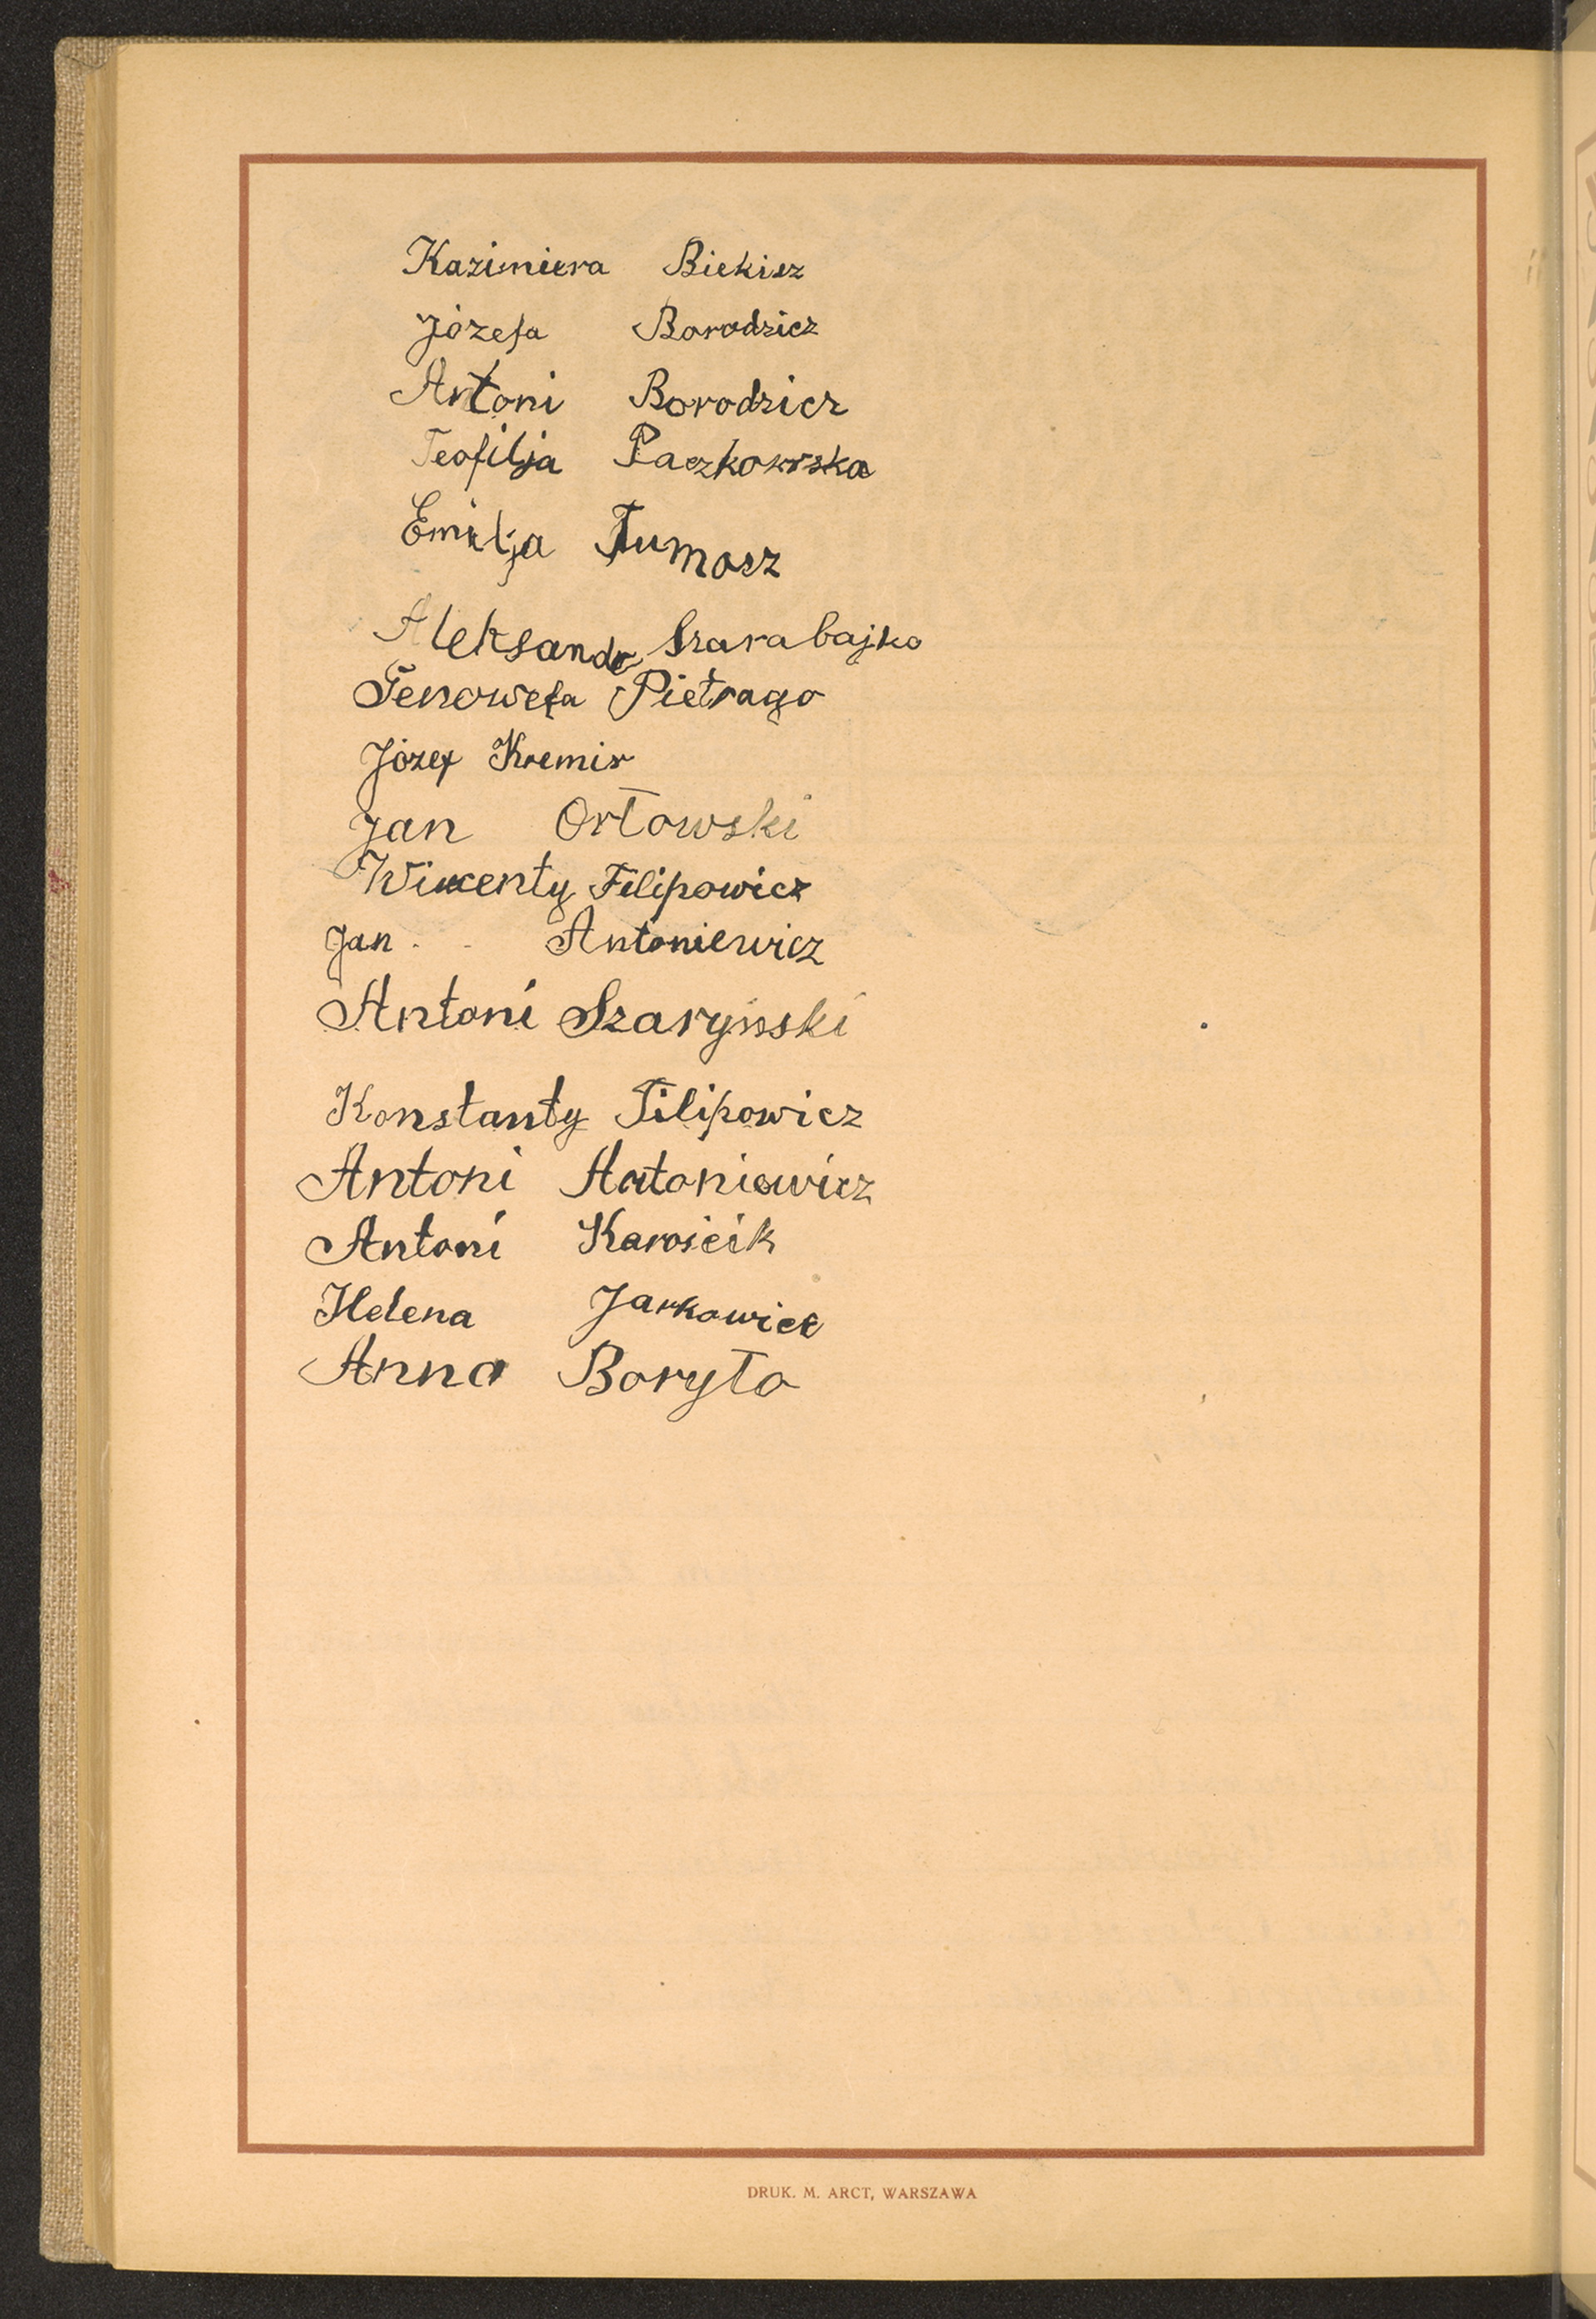 Kazimiera Biekisz
Józefa Borodzicz
Antoni Borodzicz
Teofilja Paczkowska
Emilja Tumosz
Aleksandr Szarabajko
Genowefa Pietrago
Józef Kremis
Jan Orłowski
Wincenty Filipowicz
Jan Antoniewicz
Antoni Szaryński
Konstanty Filipowicz
Antoni Antoniewicz
Antoni Karościk
Helena Jarkowicz
Anna Boryło
DRUK. M. ARCT, WARSZAWA